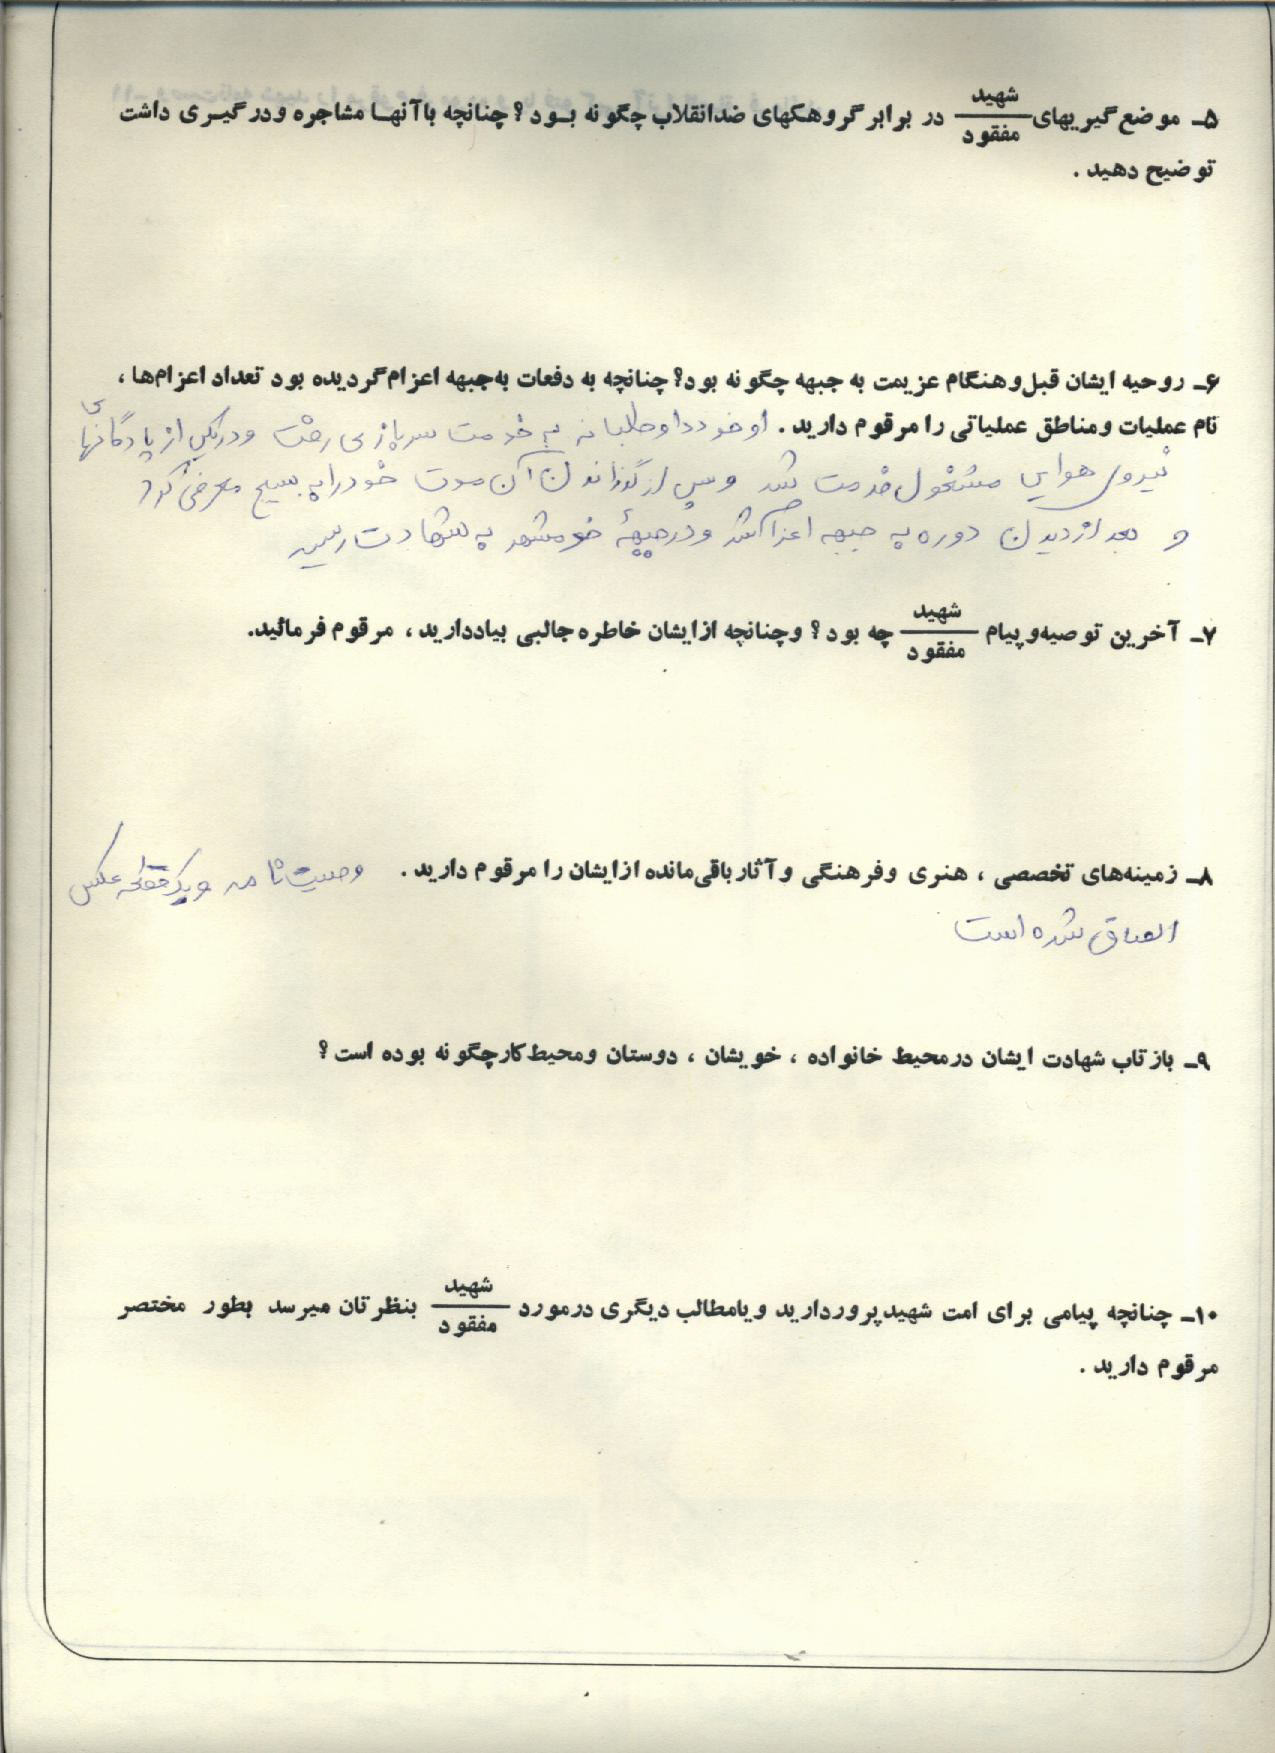 ۵ـ موضع گیریهای شهید/مفقود در برابر گروهکهای ضدانقلاب چگونه بود؟ چنانچه باآنها مشاجره ودرگیری داشت
توضیح دهید .
۶ـ روحیه ایشان قبل وهنگام عزیمت به جبهه چگونه بود؟ چنانچه به دفعات به‌جبهه اعزام گردیده بود تعداد اعزام‌ها ،
نام عملیات ومناطق عملیاتی را مرقوم دارید . او خود داوطلبانه به خدمت سربازی رفت و دریکی از پادگانهای
نیروی هوایی مشغول خدمت شد و پس از گذراندن آن مدت خود را به بسیج معرفی کرد
و بعد از دیدن دوره به جبهه اعزام شد و در جبههٔ خرمشهر به شهادت رسید
۷ـ آخرین توصیه‌وپیام شهید/مفقود چه بود؟ وچنانچه ازایشان خاطره جالبی بیاددارید ، مرقوم فرمائید.
۸ـ زمینه‌های تخصصی ، هنری وفرهنگی وآثارباقی‌مانده ازایشان را مرقوم دارید . وصیت‌نامه و یک قطعه عکس
الصاق شده است
۹ـ بازتاب شهادت ایشان درمحیط خانواده ، خویشان ، دوستان ومحیط‌کارچگونه بوده است؟
۱۰ـ چنانچه پیامی برای امت شهیدپروردارید ویامطالب دیگری درمورد شهید/مفقود بنظرتان میرسد بطور مختصر
مرقوم دارید .